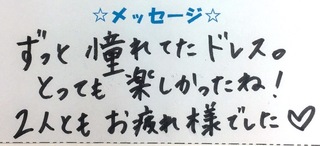 ☆メッセージ☆
ずっと憧れてたドレス。
とっても楽しかったね!
2人ともお疲れ様でした♡